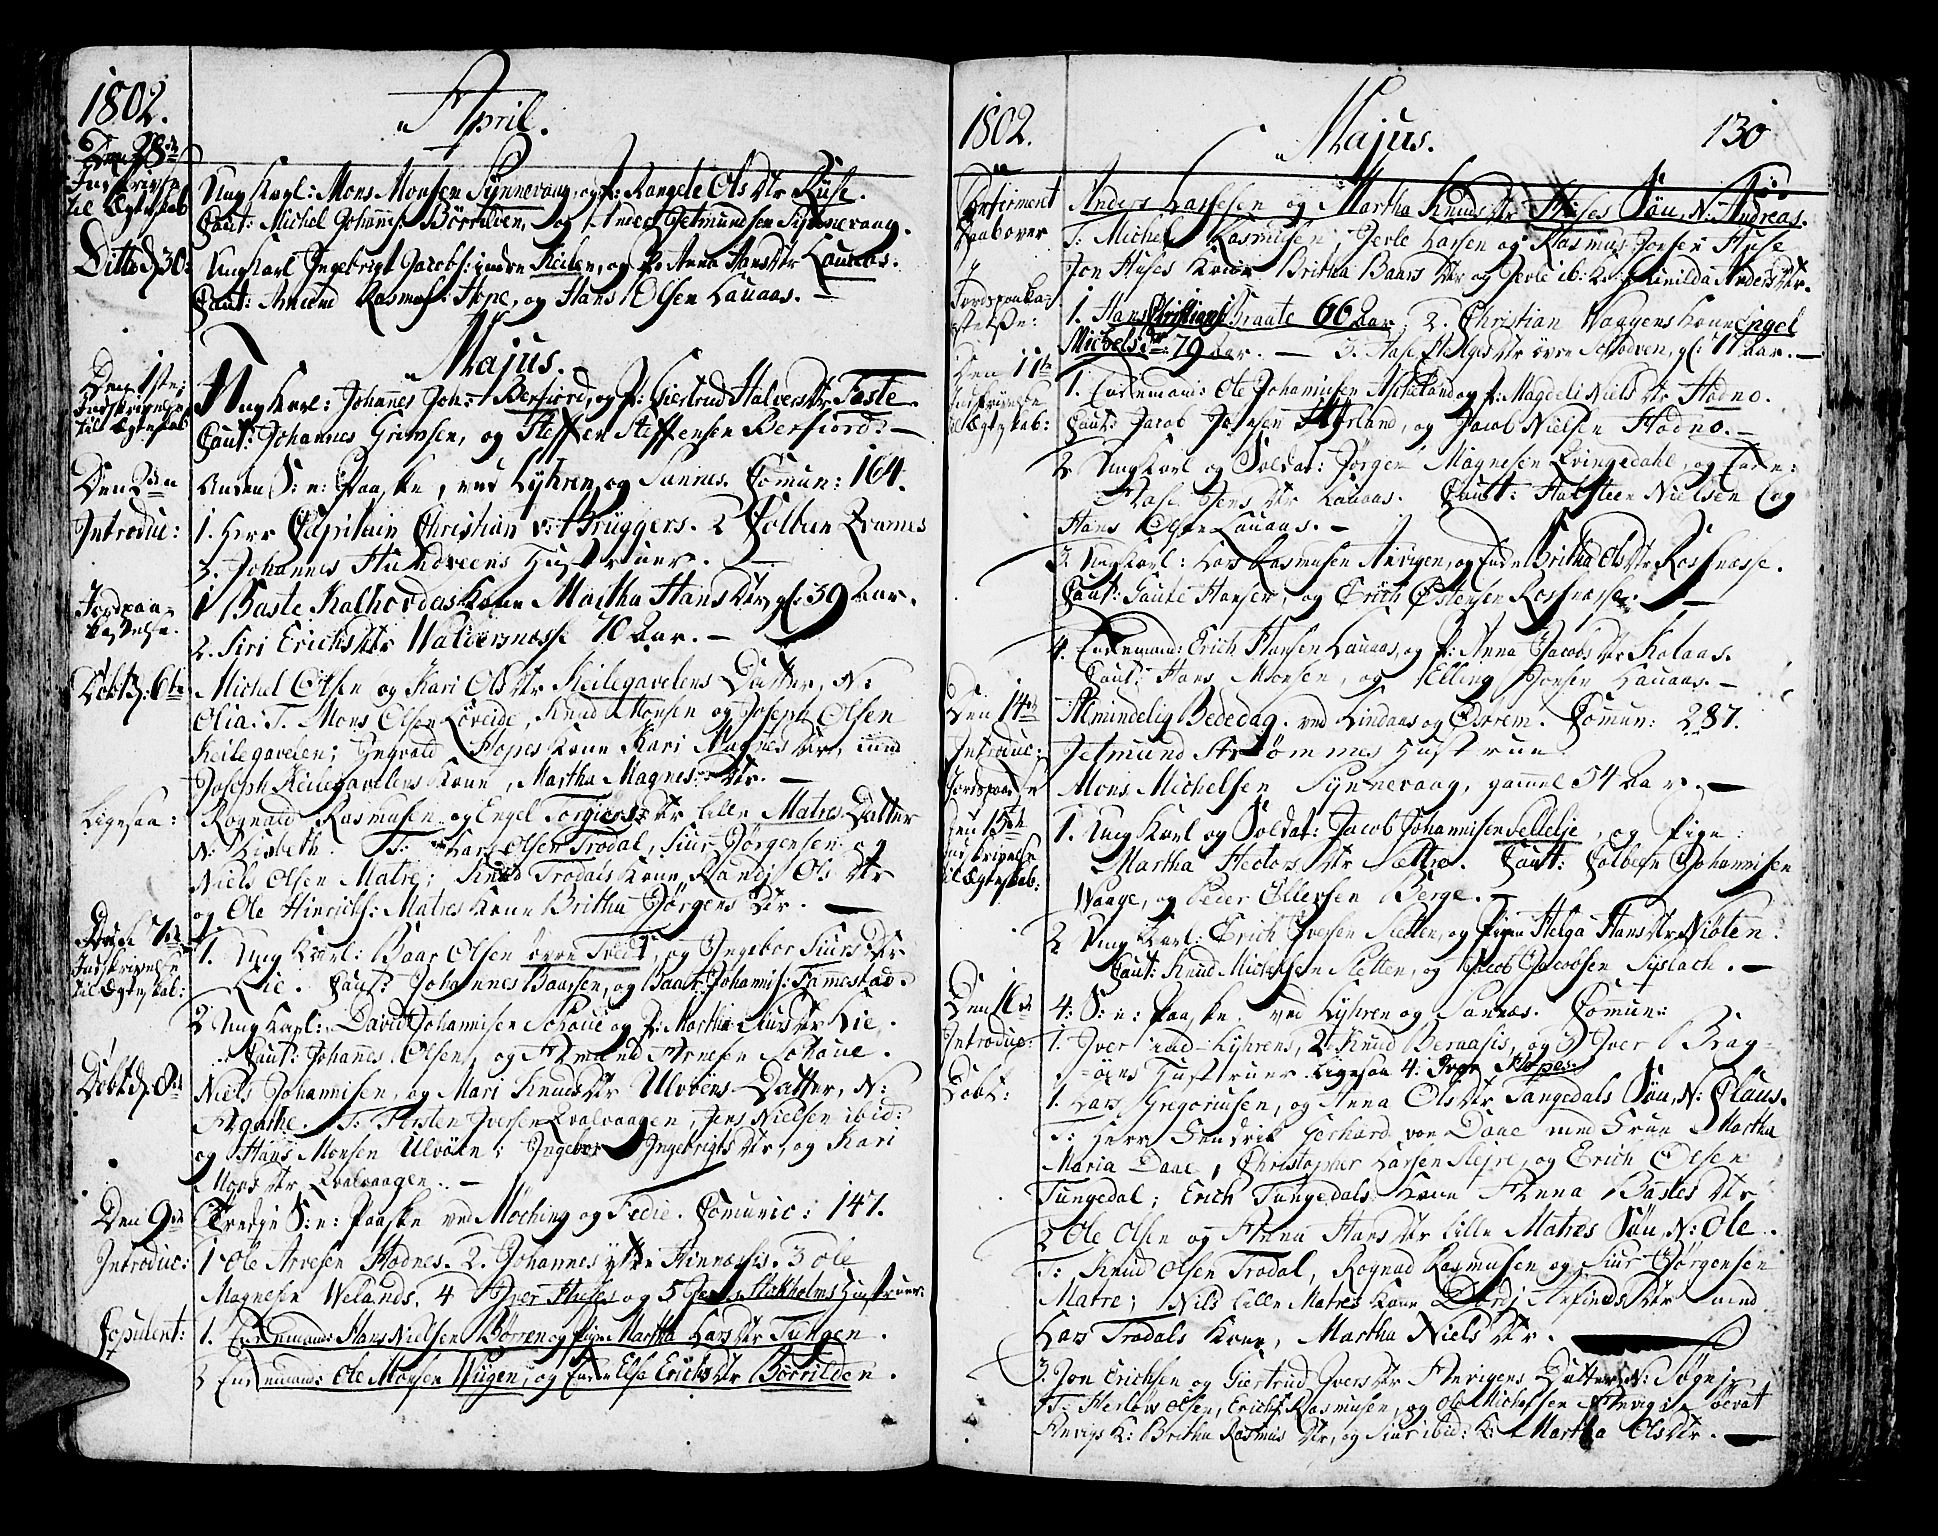 1802.
April.
Den 28de
Indskrivelse til Ægteskab
Ung Karl: Mons Monsen Synnevaag, og P: Rangele Ols Dtr Riise.
Caut: Michel Johannes: Börrilden, og Amun Getmundsen Synnevaag.
Ditto d. 30:
Ungkarl Ingebrigt Jacobs: indre Keilen, og P: Anna Hans Dtr Lauaas.
Caut: Amund Rasmus: Hope, og Hans Olsen Lauaas. —
Majus.
Den 1ste:
Indskrivelse til Ægteskab
Ung Karl: Johannes Joh: Berfiord, og P: Giertrud Halvers Dtr Faste.
Caut: Johannes Grimsen, og Steffen Steffensen Berfiord. —
Den 2den
Anden S: e: Paaske, ved Lyhren og Sannes. Comun: 164.
Introduc:
1. Herr Capitain Christian v: Brüggers. 2 Colbeen
3. Johannes Hundveens Hustruer. —
Jordpaakastelse.
1 Baste Kalhovdas Kone Martha Hans Dtr, gl: 39 Aar.
2. Siri Erichs Dtr Walversnæsse 70 Aar. —
Döbt d: 6te
Michel Olsen og Kari Ols Dtr Keilegavelens Datter, N:
Olia: T. Mons Olsen Löveide, Knud Monsen og Joseph Olsen
Keilegavelen; Ingvald Hopes Kone Kari Magnes Dtr, med
Joseph Keilegavelens Kone, Martha Magnes Dtr. —
Ligesaa:
Rognald Rasmusen og Engel Torgiers Dtr lille Matres Datter
N: Lisbeth. T: Lars Olsen Trodal, Siur Jörgensen og
Niels Olsen Matre; Knud Trodals Kone Randi Ols Dtr
og Ole Hinrichs: Matres Kone Britha Jörgens Dtr. —
Den 7de
Indskrivelse til Ægteskab:
1. Ung Karl: Baar Olsen övre Tvedt, og Ingebor Siurs Dtr
Lie. Caut: Johannes Baarsen, og Baar Johannis: Fammestad.
2 Ung Karl: David Johannisen Schoue og P: Martha Siurs Dtr Lie.
Caut: Johannes Olsen, og Amund Arnesen Schoue.
Döbt d. 8de
Niels Johannisen, og Mari Knuds Dtr Ulvöens Datter, N:
Agathe. T: Kirsten Iversen Qvalvaagen, Jens Nielsen ibid:
og Hans Monsen Ulvöen; Ingebor Ingebrigts Dtr, og Kari
Mons Dtr Qvalvaagen. —
Den 9de
Tredje S: e: Paaske ved Möching og Fedie. Comunic: 147.
Introduc:
1 Ole Arvesen Hodnes. 2. Johannes ytre Hinnæsis. 3 Ole
Magnesen Welands. 4 Iver Huses og 5 Jens Stokholms Hustruer.
Copulent:
1. Enkemand Hans Nielsen Börren og Pigen Martha Lars Dtr Tungen.
2 Enkemand Ole Monsen Wiigen, og Enke Else Erichs Dtr Börrilden.
1802.
Majus.
130
Confirment Daabover
Anders Lassesen og Martha Knuds Dtr Huses Sön, N: Andreas.
T: Michel Rasmusen, Jerle Larsen og Rasmus Jonsen Huse
Jon Huses Kone Britha Baars Dtr og Jerle ib: K: Gunilda Anders Dtr.
Jordpaakastelse:
1. Hans Christians: Straate 66 Aar, 2. Christian Vaagens Kone Engel
Michels Dtr: 79 Aar. — 3. Aase Helges Dtr övre Schodven, gl: 11 Aar. —
Den 11te
Indskrivelse til Ægteskab:
1. Enkemand: Ole Johannisen Mikeland og P: Magdeli Niels Dtr Hodno.
Caut: Jacob Jensen Myrland, og Jacob Nielsen Hodno. —
2 Ungkarl og Soldat: Jörgen Magnesen Evingedahl, og Enke:
Aase Jens Dtr Lauaas. Caut: Halsteen Nielsen Eeg
Hans Olsen Lauaas. —
3. Ungkarl: Lars Rasmusen Anvigen, og Enke Britha Ols Dtr Rosnæsse.
Caut: Gaute Hansen, og Erich Östensen Rosnæsse. —
4. Enkemand: Erich Hansen Lauaas, og P: Anna Jacobs Dtr Kolaas.
Caut: Hans Monsen, og Elling Jonsen Lauaas. —
Den 14de
Almindelig Bededag. ved Lindaas og Östrem. Comun: 287.
Introduc:
Jetmund Aströmmes Hustrue
Jordpaakastelse
Mons Michelsen Synnevaag, gammel 54 Aar. —
Den 15de
Indskrivelse til Ægteskab:
1. Ung Karl og Soldat: Jacob Johannisen Sellelie, og Pige:
Martha Hectors Dtr Sættre. Caut: Colbeen Johannisen
Waage, og Peter Ellersen Berge. —
2 Ung Karl: Erich Iversen Sletten, og Pigen Helga Hans Dtr Niöten.
Caut: Knud Michelsen Sletten, og Jacob Jacobsen Syslach. —
Den 16de
4: S: e: Paaske. ved Lyhren og Sannæs. Comun:
Introduc:
1. Iver Lyhrens, 2. Knud Beraasis, og 3 Iver Bragöens
Hustruer ligesaa 4. Iver Hopes:
Döbt:
1. Lars Gregoriusen, og Anna Ols Dtr Tangedals Sön, N: Claus.
T: Herr Hendrik Gerhard von Daae med Frue Martha
Maria Daae, Christopher Larsen Slejre, og Erich Olsen
Tungedal; Erich Tungedals Kone Anna Bastes Dtr
2 Ole Olsen og Anna Hans Dtr lille Matres Sön, N: Ole.
T: Knud Olsen Trodal, Rognad Rasmusen og Siur Jörgensen
Matre; Nils lille Matres Kone Dordi Arfinds Dtr med
Lars Trodals Kone, Martha Niels Dtr. —
3. Jon Erichsen og Giertrud Ivers Dtr Anvigens Datter, N: Sögni
T: Herlöv Olsen, Erich Rasmusen, og Ole Michelsen Anvig; Solvat
Anvigs K: Britha Rasmus Dtr, og Siur ibid: K: Martha Ols Dtr. —